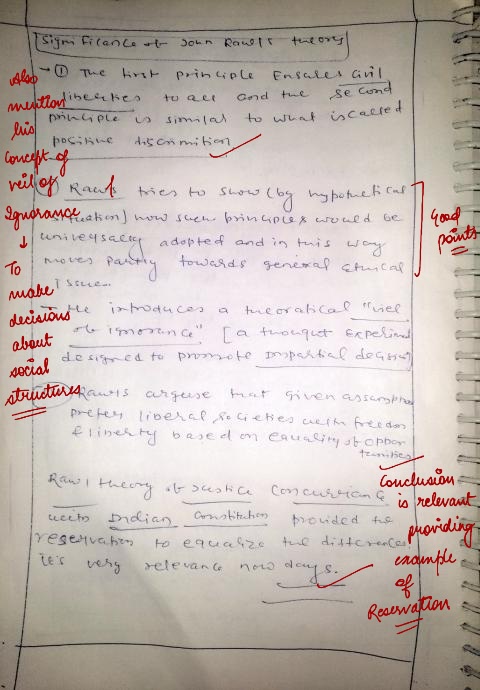 Significance of John Rawl's theory
→ ① The first principle Ensures Civil
liberties to all and the second
principle is similar to what is called
positive discrimition
Rawls tries to show (by hypothetical
situation] how such principles would be
universally adopted and in this way
moves partly towards general ethical
Issue.
He introduces a theoratical "viel
of ignorance" [a thought Experime
designed to promote Impartial decision
Rawls argues that given assumption
prefer liberal societies with freedom
& liberty based on equality of oppor
tunities
Rawl theory of Justice
with Indian Constitution provided the
reservation to equalize the differences
It's very relevance now days.
Also
mention
his
Concept of
veil of
Ignorance
↓
To
make
decisions
about
social
structures
Good
points
Conclusion
is relevant
providing
example
of
Reservation